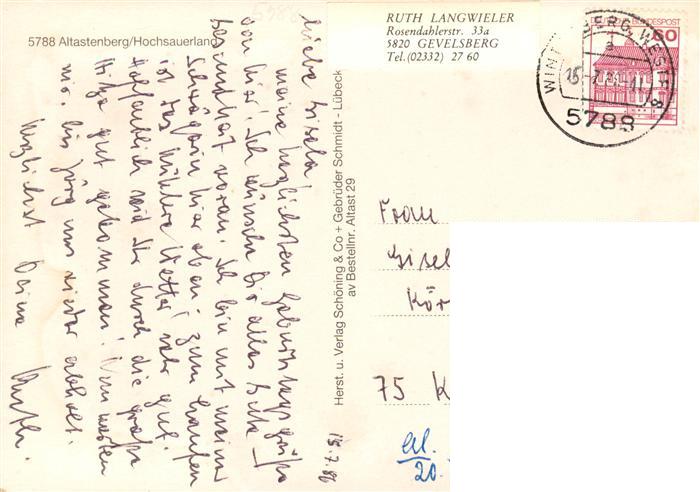 5788 Altastenberg/Hochsauerland
RUTH LANGWIELER
Rosendahlerstr. 33a
5820 GEVELSBERG
Tel.(02332) 27 60
DEUTSCHE BUNDESPOST
60
5788
15.7.86
Liebe Gisela
meine herzlichsten Geburtstagsgrüße
von hier! Ich wünsche Dir alles Gute,
Gesundheit voran. Ich bin mit meiner
Schwägerin hier oben; zum Laufen
ist das kühlere Wetter sehr gut.
Hoffentlich seid Ihr durch die große
Hitze gut gekommen! Nun warten
wir, bis Jörg uns wieder abholt.
Herzlichst Deine Ruth.
Herst. u. Verlag Schöning & Co + Gebrüder Schmidt - Lübeck
av Bestellnr. Altast 29
Frau
Gisel
Kör
75 K
erl.
20.